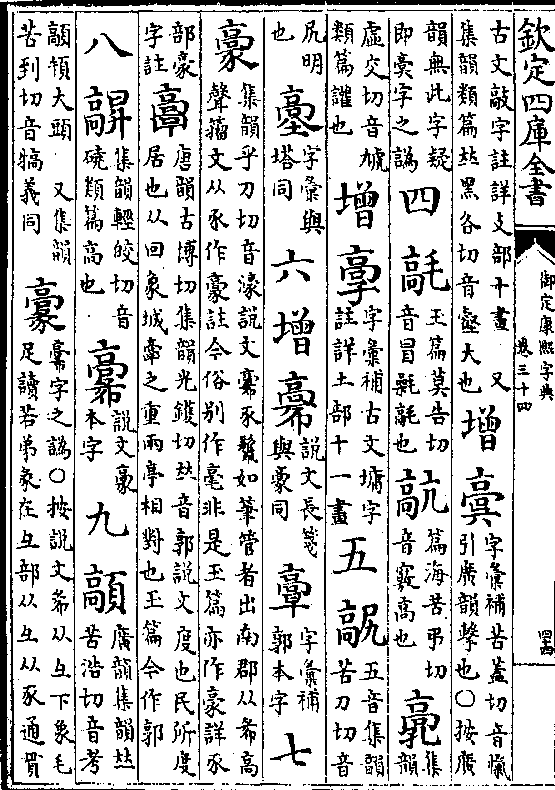 欽定四庫全書
御定康熙字典
卷三十四
古文敲字註詳攴部十畫 又
集韻類篇𠀤黑各切音壑大也 增
字彙補苦蓋切音愾
引廣韻擊也○按廣
韻無此字疑
即字之譌
四
玉篇莫告切
音冒毷也
篇海苦弔切
音竅高也
集
韻
虛交切音虓
類篇讙也
增
字彙補古文墉字
註詳土部十一畫
五 髛
五音集韻
苦刀切音
尻明
也
字彙與
塔同
六 增 𩫕
說文長箋
與豪同
字彙補
郭本字
七
集韻乎刀切音濠說文𩫕豕鬣如筆管者出南郡从㣇高
聲籀文从豕作豪註今俗別作毫非是玉篇亦作豪詳豕
部豪
字註
𩫏
唐韻古博切集韻光鑊切𠀤音郭說文度也民所度
居也从回象城𩫏之重兩亭相對也玉篇今作郭
八 髜
集韻輕皎切音
磽類篇高也
𩫕
說文豪
本字
九
廣韻集韻𠀤
苦浩切音考
頓大頭 又集韻
苦到切音犒義同
𩫕字之譌○按說文㣇从彑下象毛
足讀若弟彖在互部从彑从豕通貫